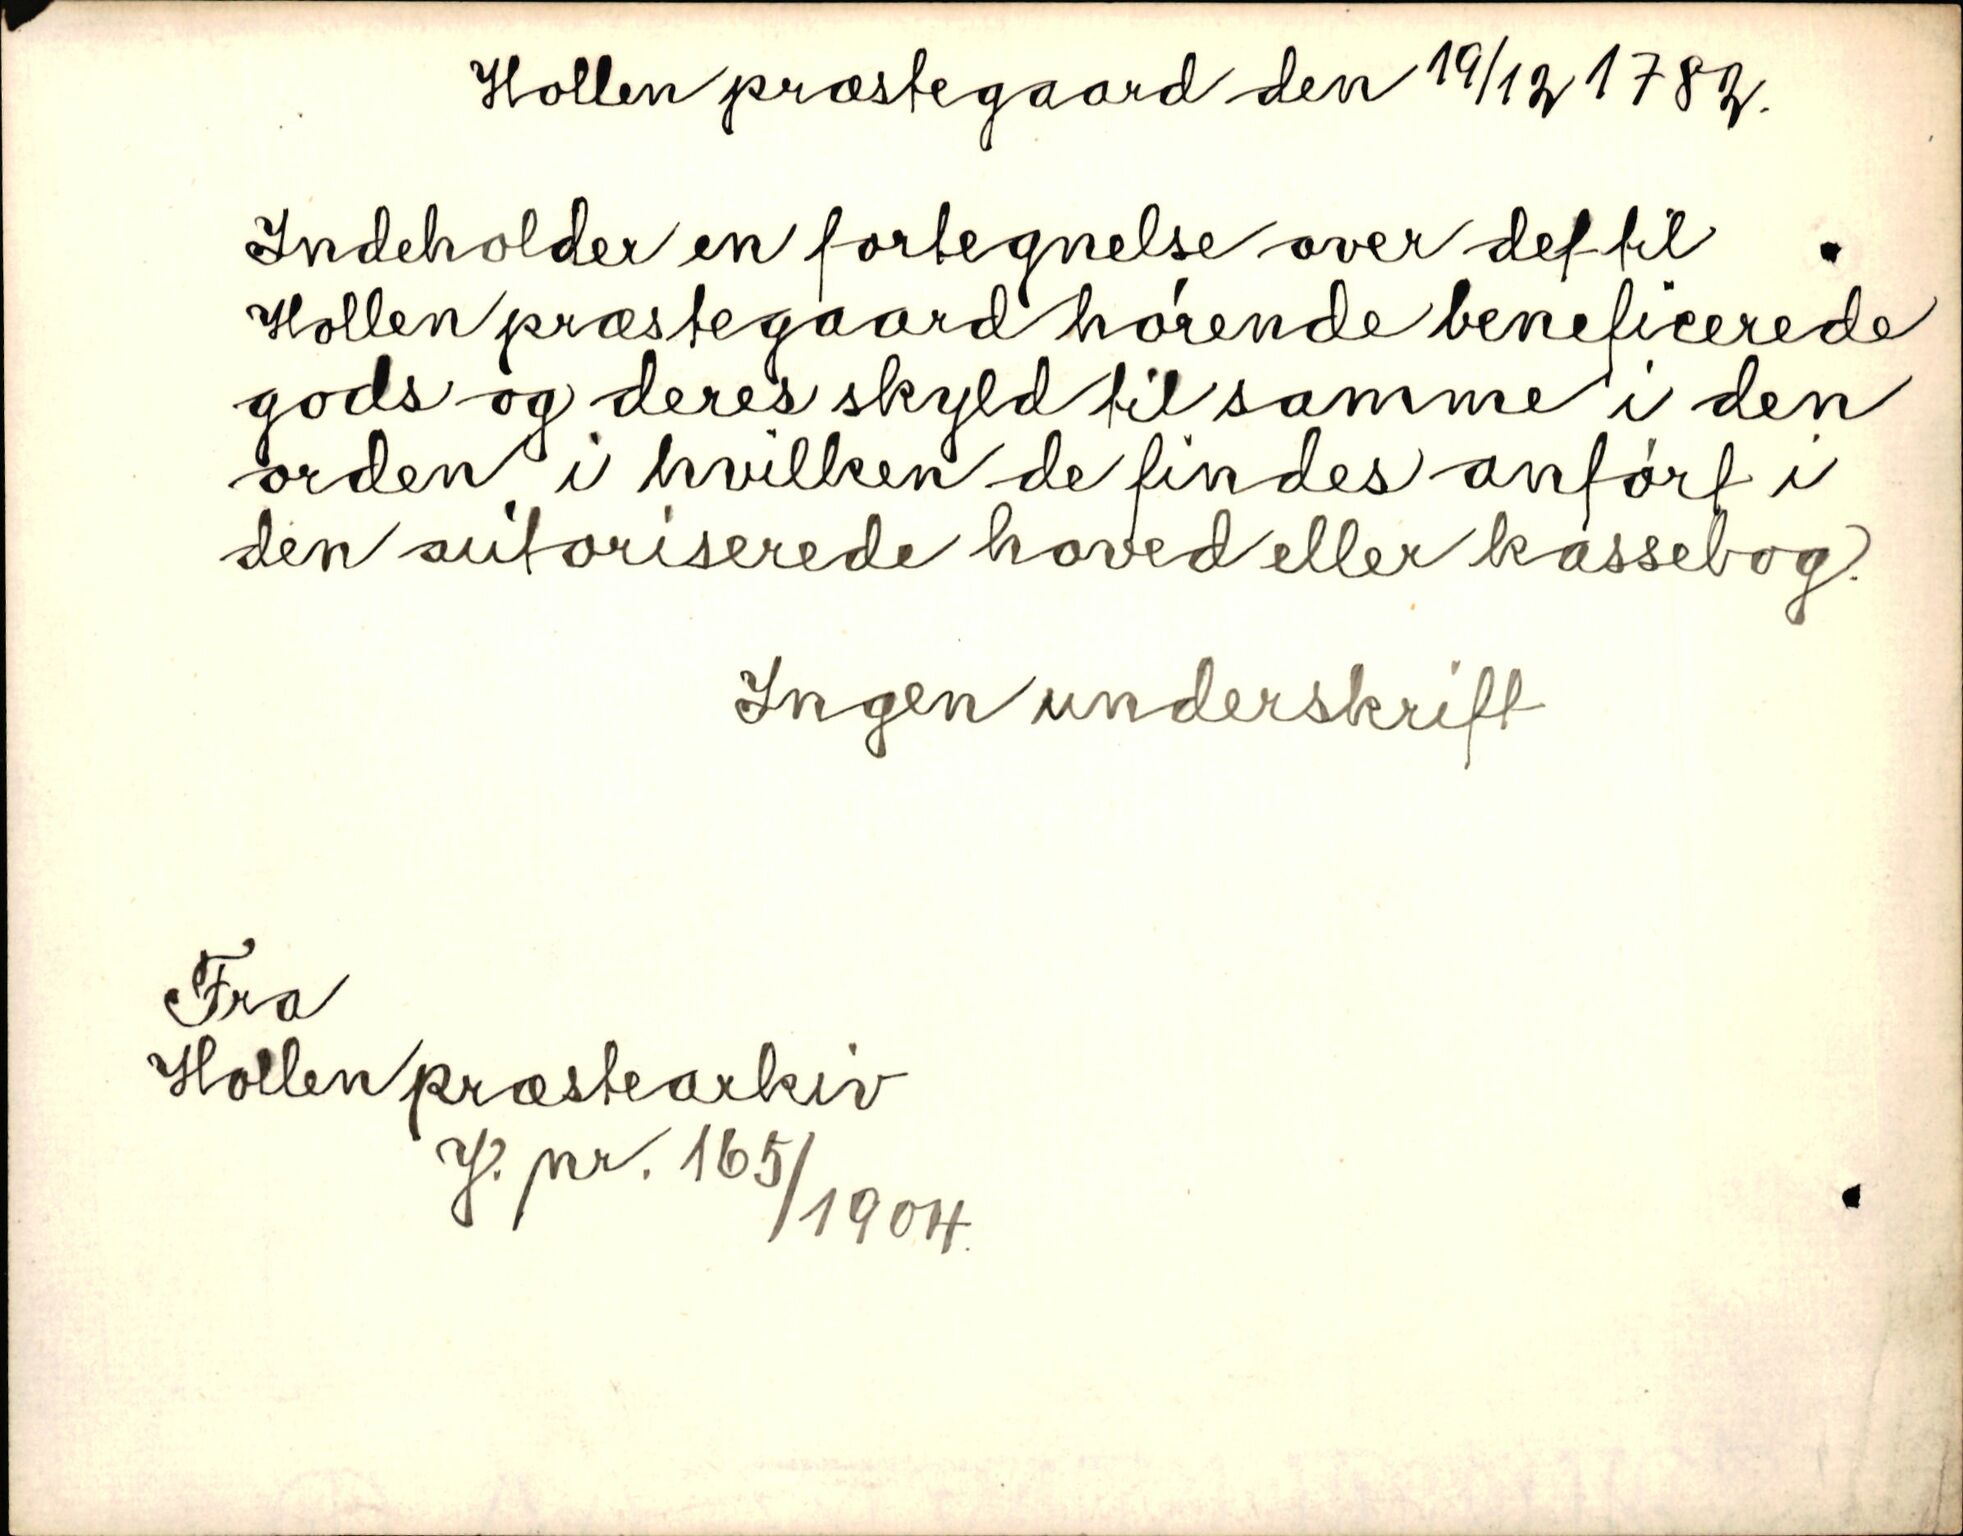 Hollen præstegaard den 19/12 1782.
Indeholder en fortegnelse over det til
Hollen præstegaard hørende beneficerede
gods og deres skyld til samme i den
orden i hvilken de findes anført i
den autoriserede hoved eller kassebog.
Ingen underskrift
Fra
Hollen præstearkiv
J. nr. 165/1904.